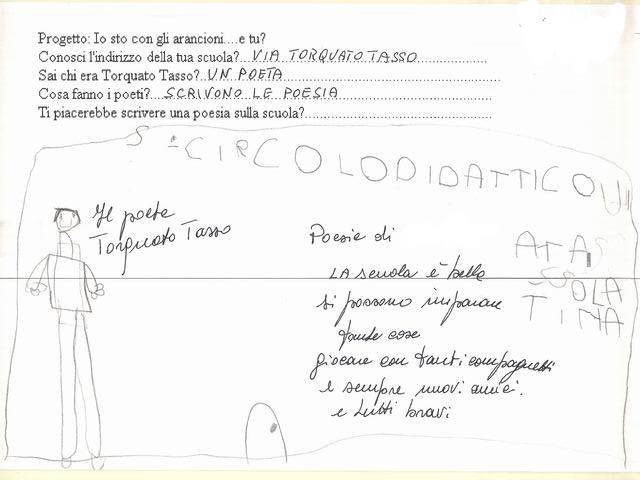 Progetto: Io sto con gli arancioni....e tu?
Conosci l'indirizzo della tua scuola? VIA TORQUATO TASSO
Sai chi era Torquato Tasso? UN POETA
Cosa fanno i poeti? SCRIVONO LE POESIA
Ti piacerebbe scrivere una poesia sulla scuola?
5° CIRCOLODIDATTICO
Il poeta
Torquato Tasso
Poesie di
LA scuola è bella
si possono imparare
tante cose
giocare con tanti compagnetti
e sempre nuovi amici.
e tutti bravi